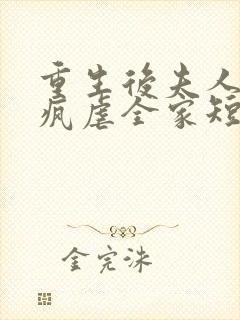 重生後夫人
瘋虐全家短
金完洙